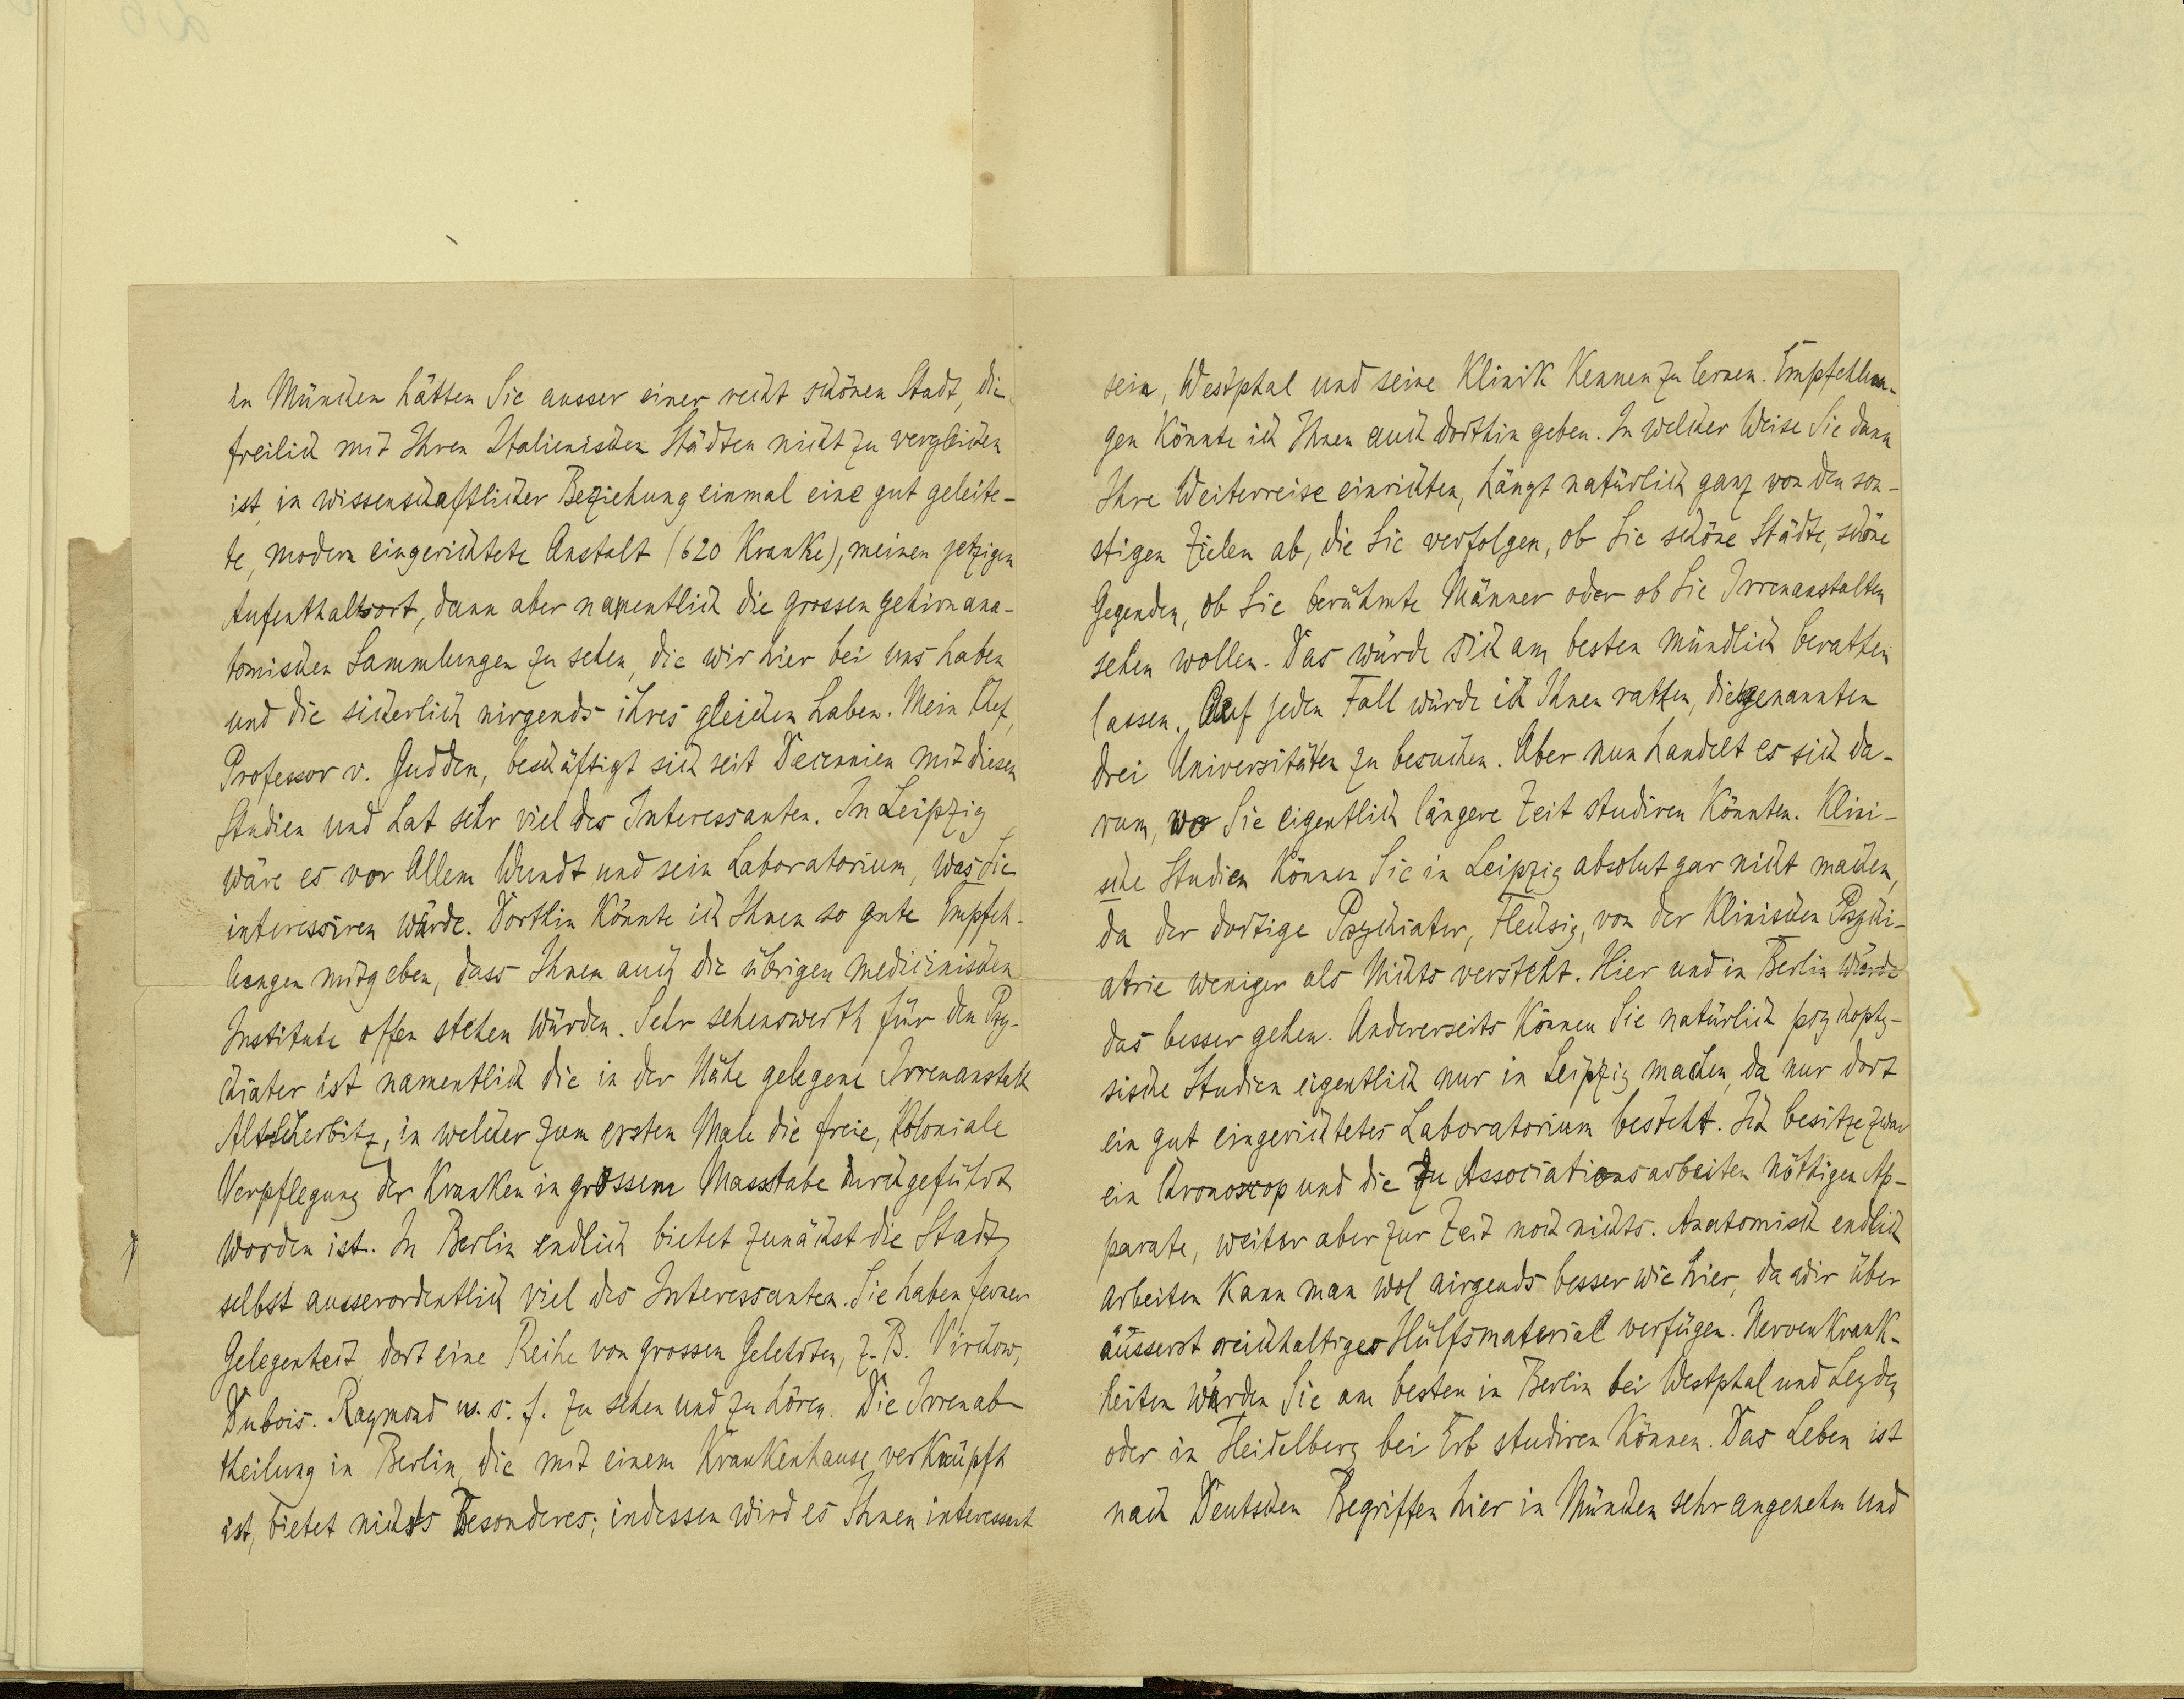 in München hätten Sie ausser einer recht schönen Stadt, die
freilich mit Ihren Italienischen Städten nicht zu vergleichen
ist, in wissenschaftlicher Beziehung einmal eine gut geleite-
te, modern eingerichtete Anstalt (620 Kranke), meinen jetzigen
Aufenthaltsort, dann aber namentlich die grossen gehirnana-
tomischen Sammlungen zu sehen, die wir hier bei uns haben
und die sicherlich nirgends ihres gleichen haben. Mein Chef,
Professor v. Gudden, beschäftigt sich seit Decennien mit diesen
Studien und hat sehr viel des Interessanten. In Leipzig
wäre es vor Allem Wundt und sein Laboratorium, was Sie
interessiren würde. Dorthin könnte ich Ihnen so gute Empfeh-
lungen mitgeben, dass Ihnen auch die übrigen medicinischen
Institute offen stehen würden. Sehr sehenswerth für den Psy-
chiater ist namentlich die in der Nähe gelegene Irrenanstalt
Altscherbitz, in welcher zum ersten Male die freie, koloniale
Verpflegung der Kranken in grossem Massstabe durchgeführt
worden ist. In Berlin endlich bietet zunächst die Stadt
selbst ausserordentlich viel des Interessanten. Sie haben ferner
Gelegenheit, dort eine Reihe von grossen Gelehrten, z. B. Virchow,
Dubois. Raymond u. s. f. zu sehen und zu hören. Die Irrenab-
theilung in Berlin, die mit einem Krankenhause verknüpft
ist, bietet nichts Besonderes; indessen wird es Ihnen interessant
sein, Westphal und seine Klinik kennen zu lernen. Empfehlun-
gen könnte ich Ihnen auch dorthin geben. In welcher Weise Sie dann
Ihre Weiterreise einrichten, hängt natürlich ganz von den son-
stigen Zielen ab, die Sie verfolgen, ob Sie schöne Städte, schöne
Gegenden, ob Sie berühmte Männer oder ob Sie Irrenanstalten
sehen wollen. Das würde sich am besten mündlich berathen
lassen. Auf jeden Fall würde ich Ihnen rathen, die genannten
drei Universitäten zu besuchen. Aber nun handelt es sich da-
rum, wo Sie eigentlich längere Zeit studiren könnten. Klini-
sche Studien können Sie in Leipzig absolut gar nicht machen,
da der dortige Psychiater, Flechsig, von der klinischen Psychi-
atrie weniger als Nichts versteht. Hier und in Berlin würde
das besser gehen. Andererseits können Sie natürlich psychophy-
sische Studien eigentlich nur in Leipzig machen, da nur dort
ein gut eingerichtetes Laboratorium besteht. Ich besitze zwar
ein Chronoscop und die zu Associationsarbeiten nöthigen Ap-
parate, weiter aber zur Zeit noch nichts. Anatomisch endlich
arbeiten kann man wol nirgends besser wie hier, da wir über
äusserst reichhaltiges Hülfsmaterial verfügen. Nervenkrank-
heiten würden Sie am besten in Berlin bei Westphal und Leyden
oder in Heidelberg bei Erb studiren können. Das Leben ist
nach Deutschen Begriffen hier in München sehr angenehm und